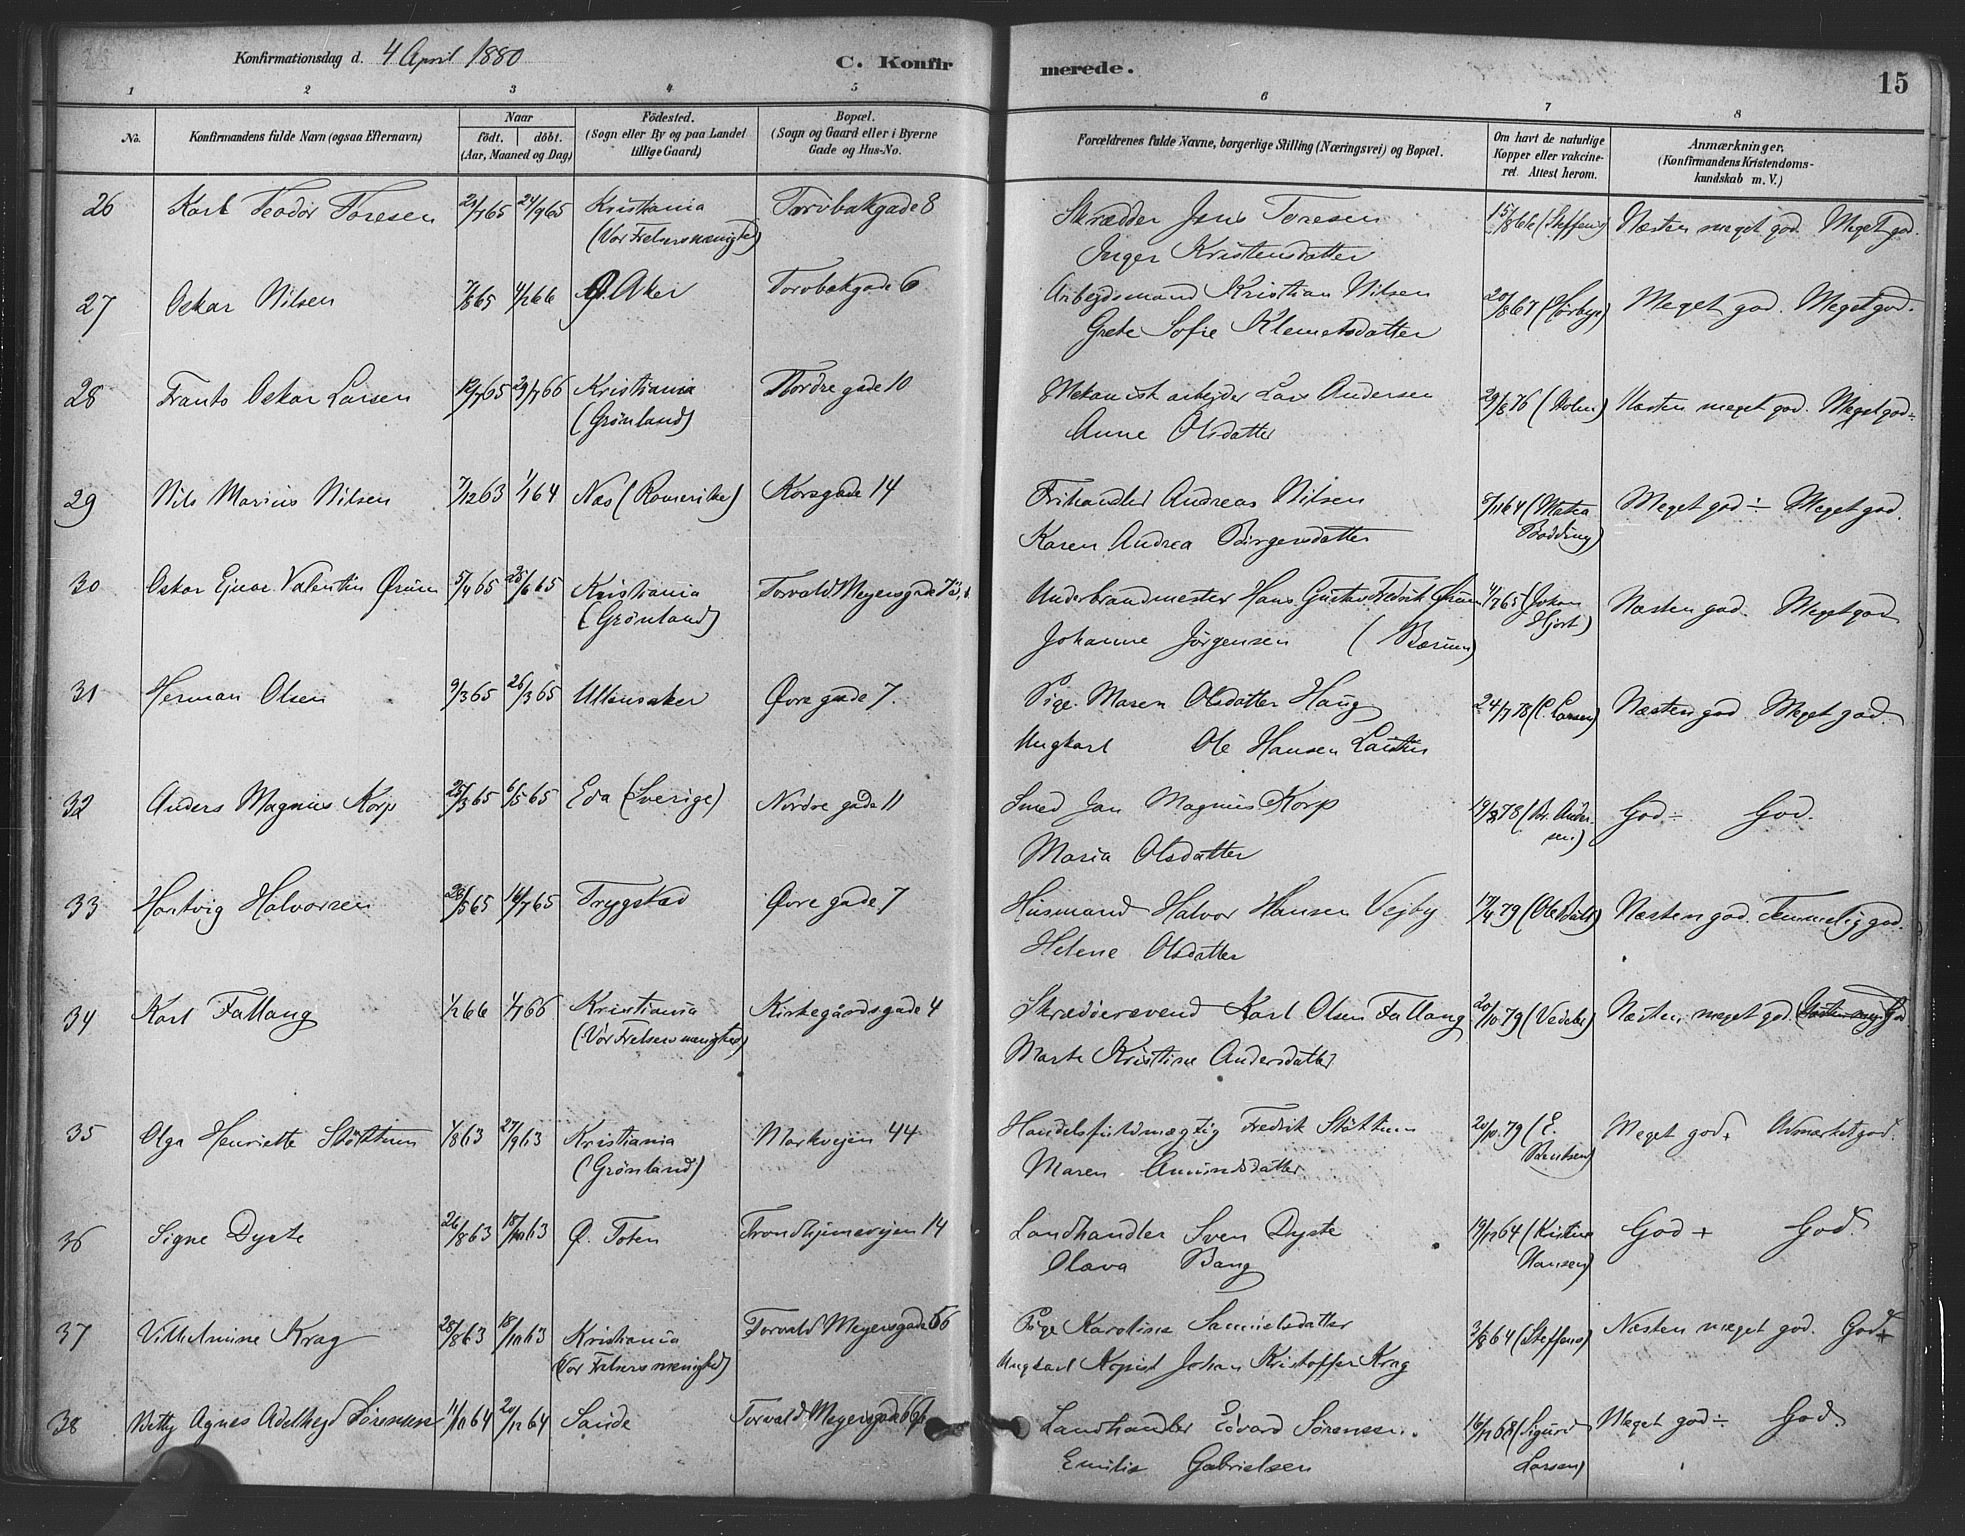 Konfirmationsdag d. 4 April 1880
C. Konfirmerede.
15
1 2 3 4 5 6 7 8
No.
Konfirmandens fulde Navn (ogsaa Efternavn)
Naar
født. døbt.
(Aar, Maaned og Dag)
Fødested.
(Sogn eller By og paa Landet
tillige Gaard)
Bopæl.
(Sogn og Gaard eller i Byerne
Gade og Hus-No.
Forældrenes fulde Navne, borgerlige Stilling (Næringsvei) og Bopæl.
Om havt de naturlige
Kopper eller vakcine-
ret. Attest herom.
Anmærkninger,
(Konfirmandens Kristendoms-
kundskab m. V.)
26 Karl Teodor Toresen 24/9 65 Kristiania Torvbakgade 8 Skrædder Jens Toresen 15/8 66 (Steffens) Næsten meget god. Meget god.
(Vor Frelsers menighed) Inger Kristensdatter
27 Oskar Nilsen 7/8 65 4/2 66 Ø. Aker Torvbakgade 6 Arbejdsmand Kristian Nilsen 20/8 67 (Sørbye) Meget god. Meget god.
Grete Sofie Klemetsdatter
28 Frants Oskar Larsen 12/7 65 29/7 66 Kristiania Nordre gade 10 Mekanisk arbejder Lars Andersen 29/8 76 (Holm) Næsten meget god. Meget god ÷
(Grønland) Anne Olsdatter
29 Nils Marius Nilsen 7/12 63 1/1 64 Næs (Romerike) Korsgade 14 Frihandler Andreas Nilsen 8/11 64 (Matea Meget god ÷ Meget god.
Karen Andrea Børgersdatter Bødding)
30 Oskar Ejnar Valentin Ørum 5/4 65 25/6 65 Kristiania Torvald Meyersgade 73, Underbrandmester Hans Gustav Fedrik Ørum 11/7 65 (Johan Næsten god. Meget god
(Grønland) Johanne Jørgensen (Bærum) Hjort)
31 Herman Olsen 9/3 65 26/3 65 Ullensaker Øvre gade 7. Pige Maren Olsdatter Haug 24/7 78 (C. Larsen) Næsten god Meget god.
Ungkarl Ole Hansen
32 Anders Magnus Korp 25/3 65 6/5 65 Eda (Sverige) Nordre gade 11 Smed Jan Magnus Korp 19/3 78 (Kr. Ander- God ÷ God.
Maria Olsdatter sen)
33 Hartvig Halvorsen 23/5 65 16/7 65 Trygstad Øvre gade 7 Husmand Halvor Hansen Vejby 17/4 79 Næsten god. Temmelig god.
Helene Olsdatter
34 Karl Fallang 1/2 66 4/7 66 Kristiania Kirkegårdsgade 4 Skrædersvend Karl Olsen Fallang 20/10 79 (Vedeler) Næsten meget god.
(Vor Frelsers menighed) Marte Kristine Andersdatter
35 Olga Henriette Støttum 1/8 63 27/9 63 Kristiania Markvejen 44 Handelsfuldmægtig Fredrik Støttum 20/10 79 (E. Meget god + Udmærket god.
(Grønland) Maren Amundsdatter Bentsen)
36 Signe Dyste 26/8 63 18/10 63 Ø. Toten Trondhjemsvejen 14 Landhandler Sven Dyste 19/12 64 (Kristine God + God.
Olava Bang Hansen)
37 Vilhelmine Krag 28/8 63 18/10 63 Kristiania Torvald Meyersgade 56 Pige Karoline Samuelsdatter 3/8 64 (Steffens) Næsten meget god. God +
(Vor Frelsers menighed) Ungkarl Kopist Johan Kristoffer Krag
38 Betty Agnes Adelhejd Sørensen 11/10 64 20/12 64 Sande Torvald Meyersgade 66 Landhandler Edvard Sørensen. 16/12 68 (Sigurd Meget god ÷ God.
Emilie Gabrielsen Larsen)